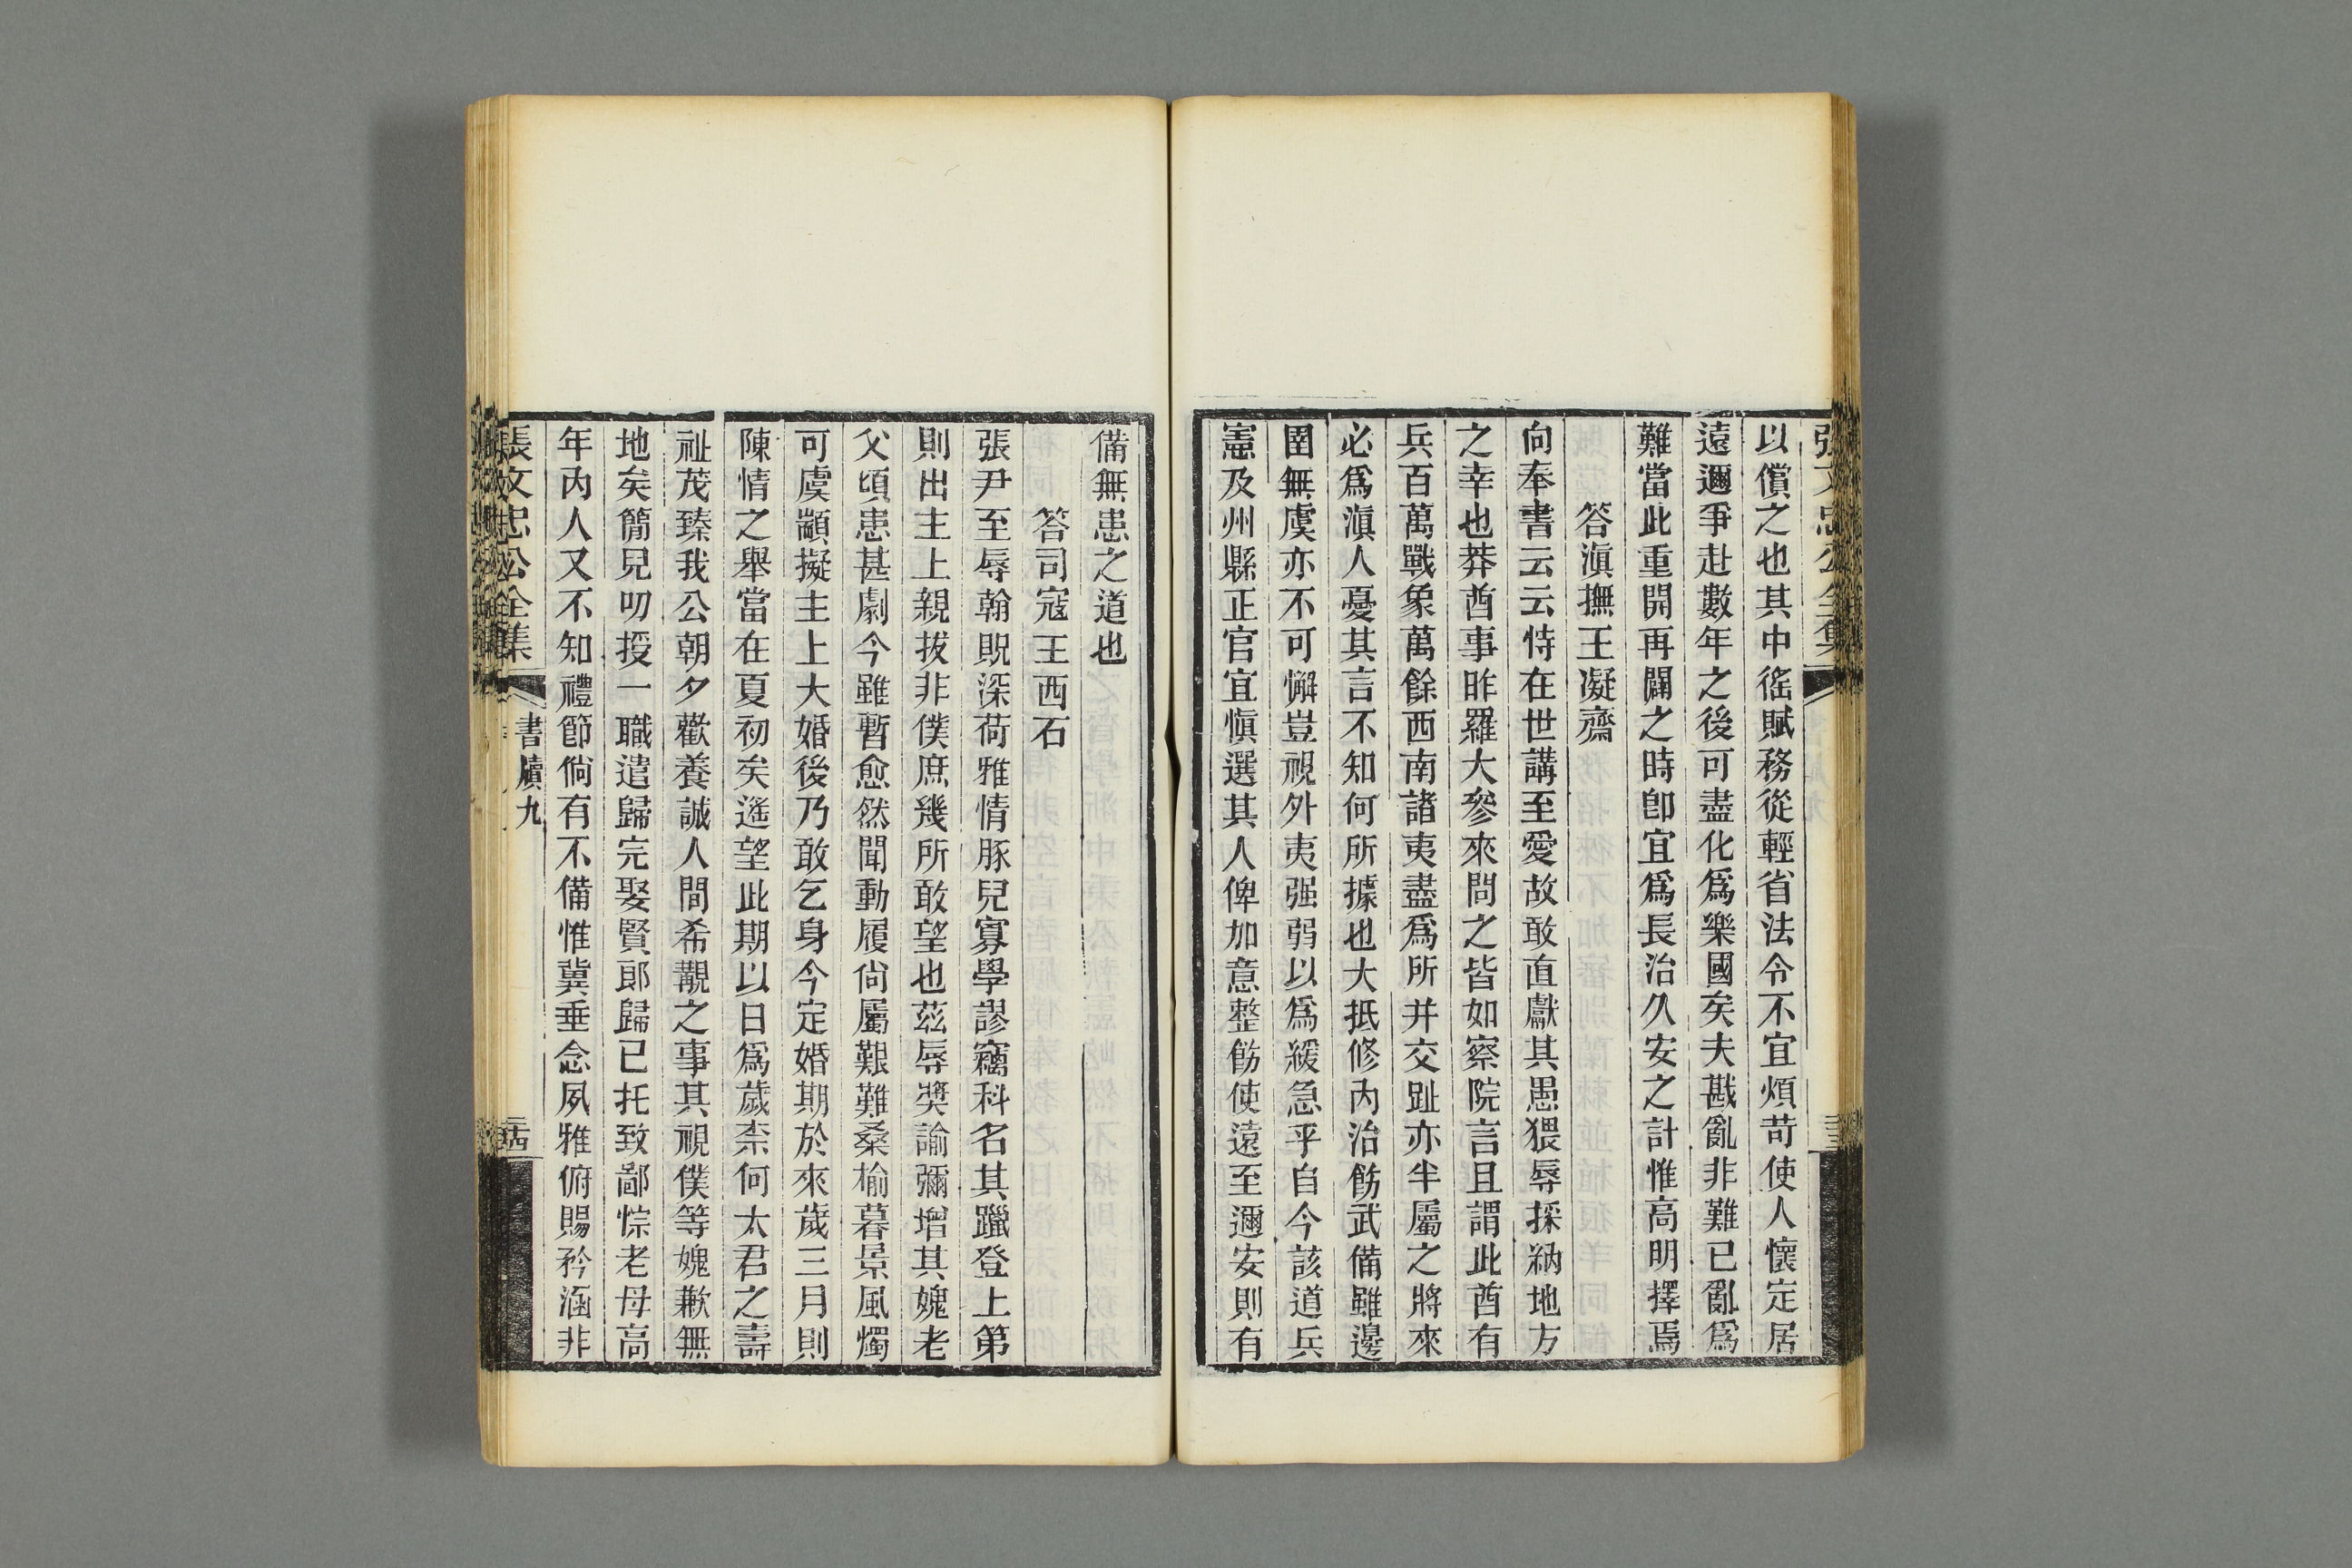 以償之也其中徭賦務從輕省法令不宜煩苛使人懷定居
遠邇爭赴數年之後可盡化爲樂國矣夫戡亂非難已亂爲
難當此重開再闢之時卽宜爲長治久安之計惟高明擇焉
答滇撫王凝齋
向奉書云云恃在世講至愛故敢直獻其愚猥辱採納地方
之幸也莽酋事昨羅大參來問之皆如察院言且謂此酋有
兵百萬戰象萬餘西南諸夷盡爲所并交趾亦半屬之將來
必爲滇人憂其言不知何所據也大抵修內治飭武備雖邊
圉無虞亦不可懈豈視外夷强弱以爲緩急乎自今該道兵
憲及州縣正官宜愼選其人俾加意整飭使遠至邇安則有
備無患之道也
答司寇王西石
張尹至辱翰貺深荷雅情豚兒寡學謬竊科名其躐登上第
則出主上親拔非僕庶幾所敢望也茲辱奬諭彌增其媿老
父頃患甚劇今雖暫愈然聞動履尙屬艱難桑榆暮景風燭
可虞顓擬主上大婚後乃敢乞身今定婚期於來歲三月則
陳情之舉當在夏初矣遙望此期以日爲歲柰何太君之壽
祉茂臻我公朝夕歡養誠人間希覯之事其視僕等媿歉無
地矣簡兒叨授一職遣歸完娶賢郎歸已托致鄙悰老母高
年內人又不知禮節倘有不備惟冀垂念夙雅俯賜矜涵非
張文忠公全集
書牘九